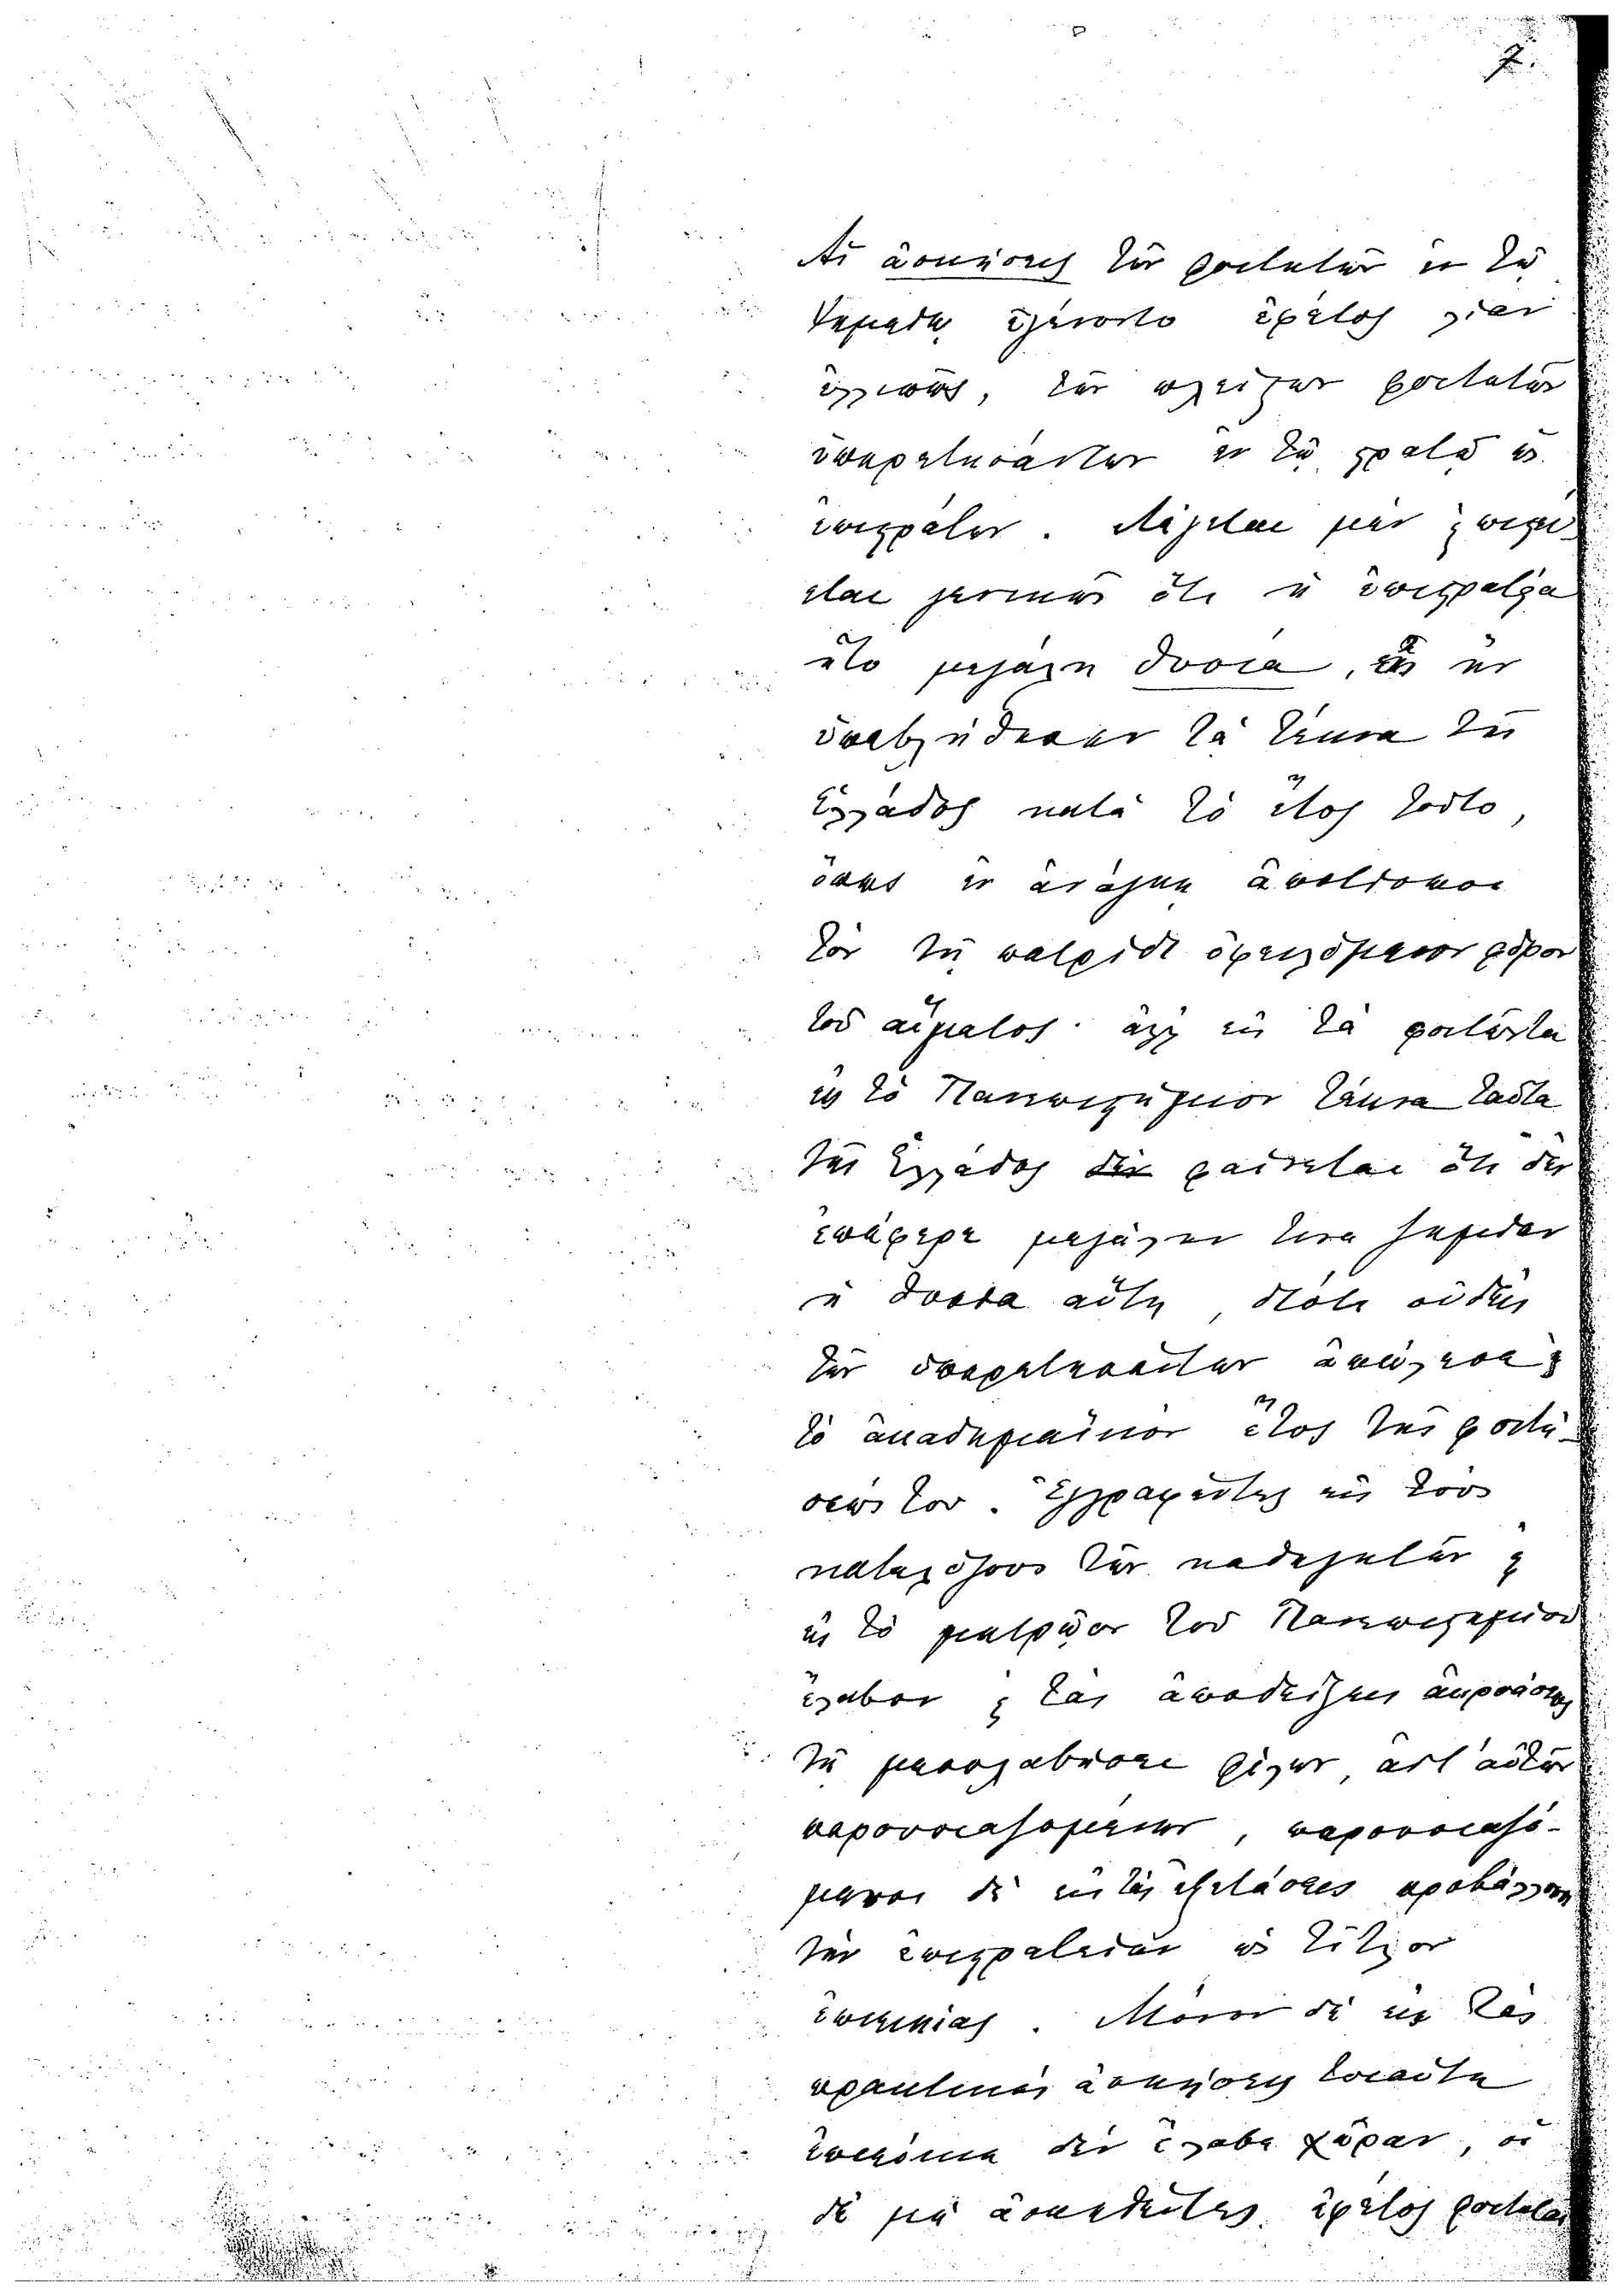 7.
Αἱ ἀσκήσεις τῶν φοιτητῶν ἐν τῷ
Χημείῳ ἐγένοντο ἐφέτος λίαν
ἐλλιπῶς, τῶν πλείστων φοιτητῶν
ὑπηρετησάντων ἐν τῷ στρατῷ ὡς
ἐπιστράτων. Λέγεται μὲν ϗ πιστεύ-
εται γενικῶς ὅτι ἡ ἐπιστρατεία
ἦτο μεγάλη θυσία, εἰς ἣν
ὑπεβλήθησαν τὰ τέκνα τῆς
Ἑλλάδος κατὰ τὸ ἔτος τοῦτο,
ὅπως ἐν ἀνάγκῃ ἀποτίσωσι
τὸν τῇ πατρίδι ὀφειλόμενον φόρον
τοῦ αἵματος· ἀλλ' εἰς τὰ φοιτῶντα
εἰς τὸ Πανεπιστήμιον τέκνα ταῦτα
τῆς Ἑλλάδος δὲν φαίνεται ὅτι δὲν
ἐπέφερε μεγάλην τινα ζημίαν
ἡ θυσία αὕτη, διότι οὐδεὶς
τῶν ὑπηρετησάντων ἀπώλεσε
τὸ ἀκαδημαϊκὸν ἔτος τῆς φοιτή-
σεώς του. Ἐγγραφέντες εἰς τοὺς
καταλόγους τῶν καθηγητῶν ϗ
εἰς τὸ μητρῷον τοῦ Πανεπιστημίου
ἔλαβον ϗ τὰς ἀποδείξεις ἀκροάσεως
τῇ μεσολαβήσει φίλων, ἀντ' αὐτῶν
παρουσιαζομένων, παρουσιαζό-
μενοι δὲ εἰς τὰς ἐξετάσεις προβάλλουσι
τὴν ἐπιστρατείαν ὡς τίτλον
ἐπιεικείας. Μόνον δὲ εἰς τὰς
πρακτικὰς ἀσκήσεις τοιαύτη
ἐπιείκεια δὲν ἔλαβε χώραν, οἱ
δὲ μὴ ἀσκηθέντες ἐφέτος φοιτηταὶ